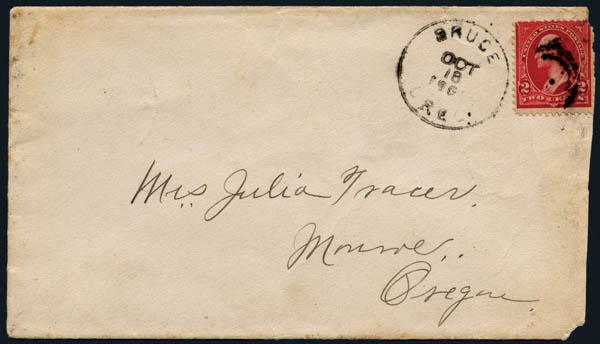 BRUCE
OCT
18
OREG.
UNITED STATES POSTAGE
2 TWO 2
Mrs Julia Tracer.
Monroe..
Oregon.